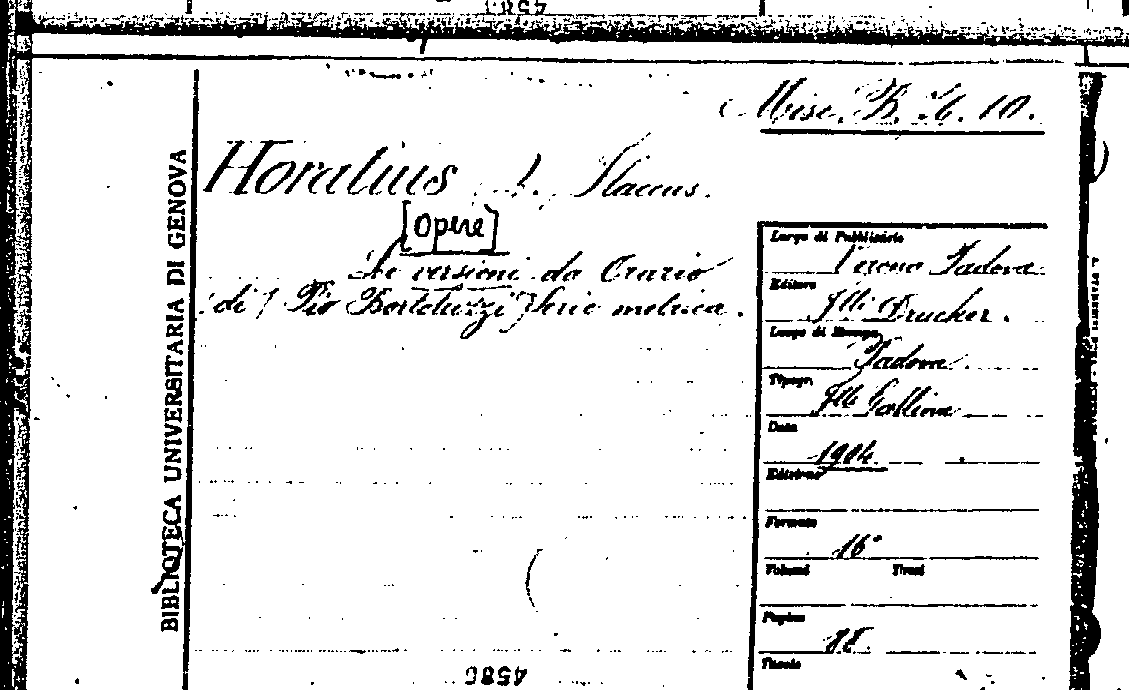 Misc. B. 26. 10.
Horatius Flaccus.
[Opere]
Le versioni da Orazio
di Pio Bortoluzzi Serie metrica.
BIBLIOTECA UNIVERSITARIA DI GENOVA
Luogo di Pubblicaz.
Verona Padova
Editore
f.lli Drucker.
Luogo di Stampa
Padova.
Tipogr.
f.lli Gallina
Data
1904
Edizione
Formato
16°
Volumi Tomi
Pagine
Tavole
4586